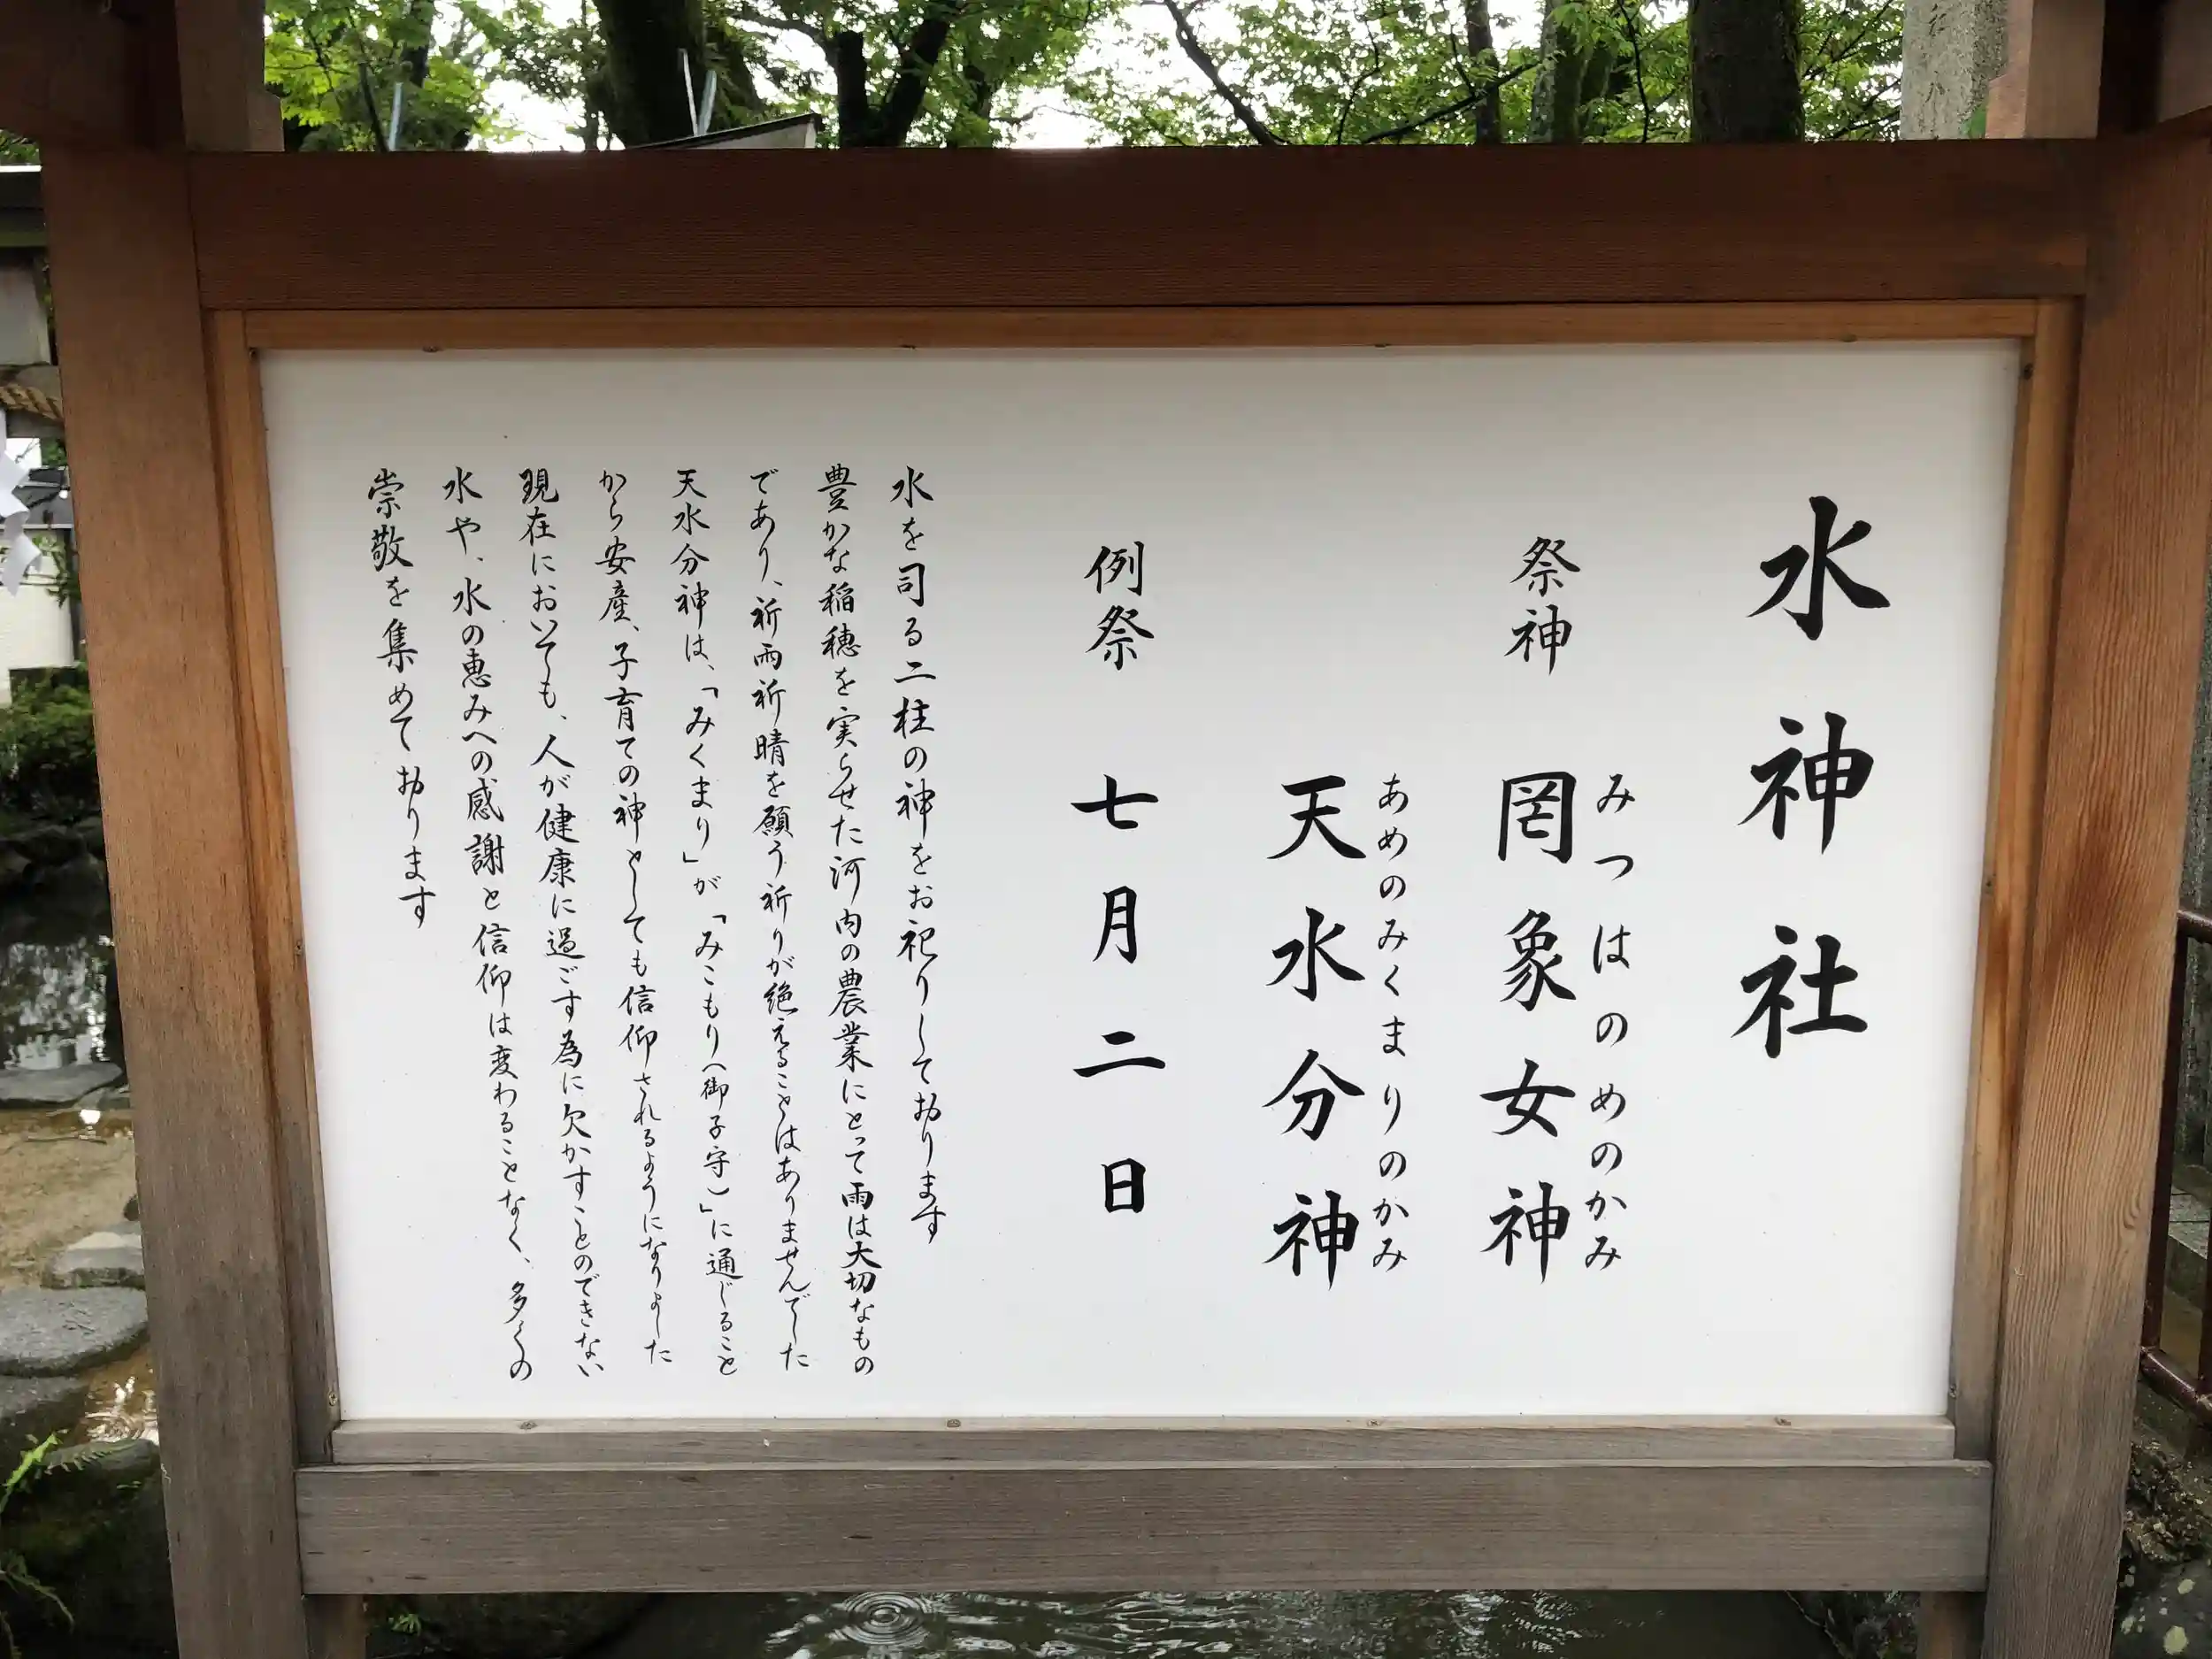 水神社
祭神 罔象女神
みつはのめのかみ
天水分神
あめのみくまりのかみ
例祭 七月二日
水を司る二柱の神をお祀りしております
豊かな稲穂を実らせた河内の農業にとって雨は大切なもの
であり、祈雨祈晴を願う祈りが絶えることはありませんでした
天水分神は、「みくまり」が「みこもり(御子守)」に通じること
から安産、子育ての神としても信仰されるようになりました
現在においても、人が健康に過ごす為に欠かすことのできない
水や、水の恵みへの感謝と信仰は変わることなく、多くの
崇敬を集めております